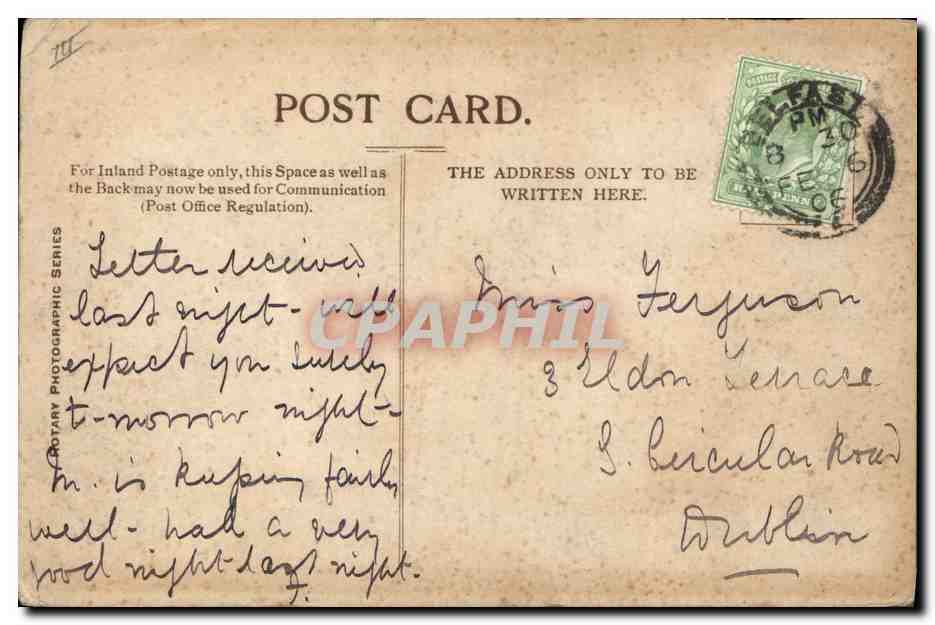 III
POST CARD.
For Inland Postage only, this Space as well as
the Back may now be used for Communication
(Post Office Regulation).
THE ADDRESS ONLY TO BE
WRITTEN HERE.
POSTAGE
BELFAST
PM
8 30
FE 6
06
ROTARY PHOTOGRAPHIC SERIES
Letter received
last night - will
expect you surely
t-morrow night -
M. is keeping fairly
well - had a very
good night last night.
F.
Miss Ferguson
3 Eldon Terrace
S. Circular Road
Dublin
CPAPHIL